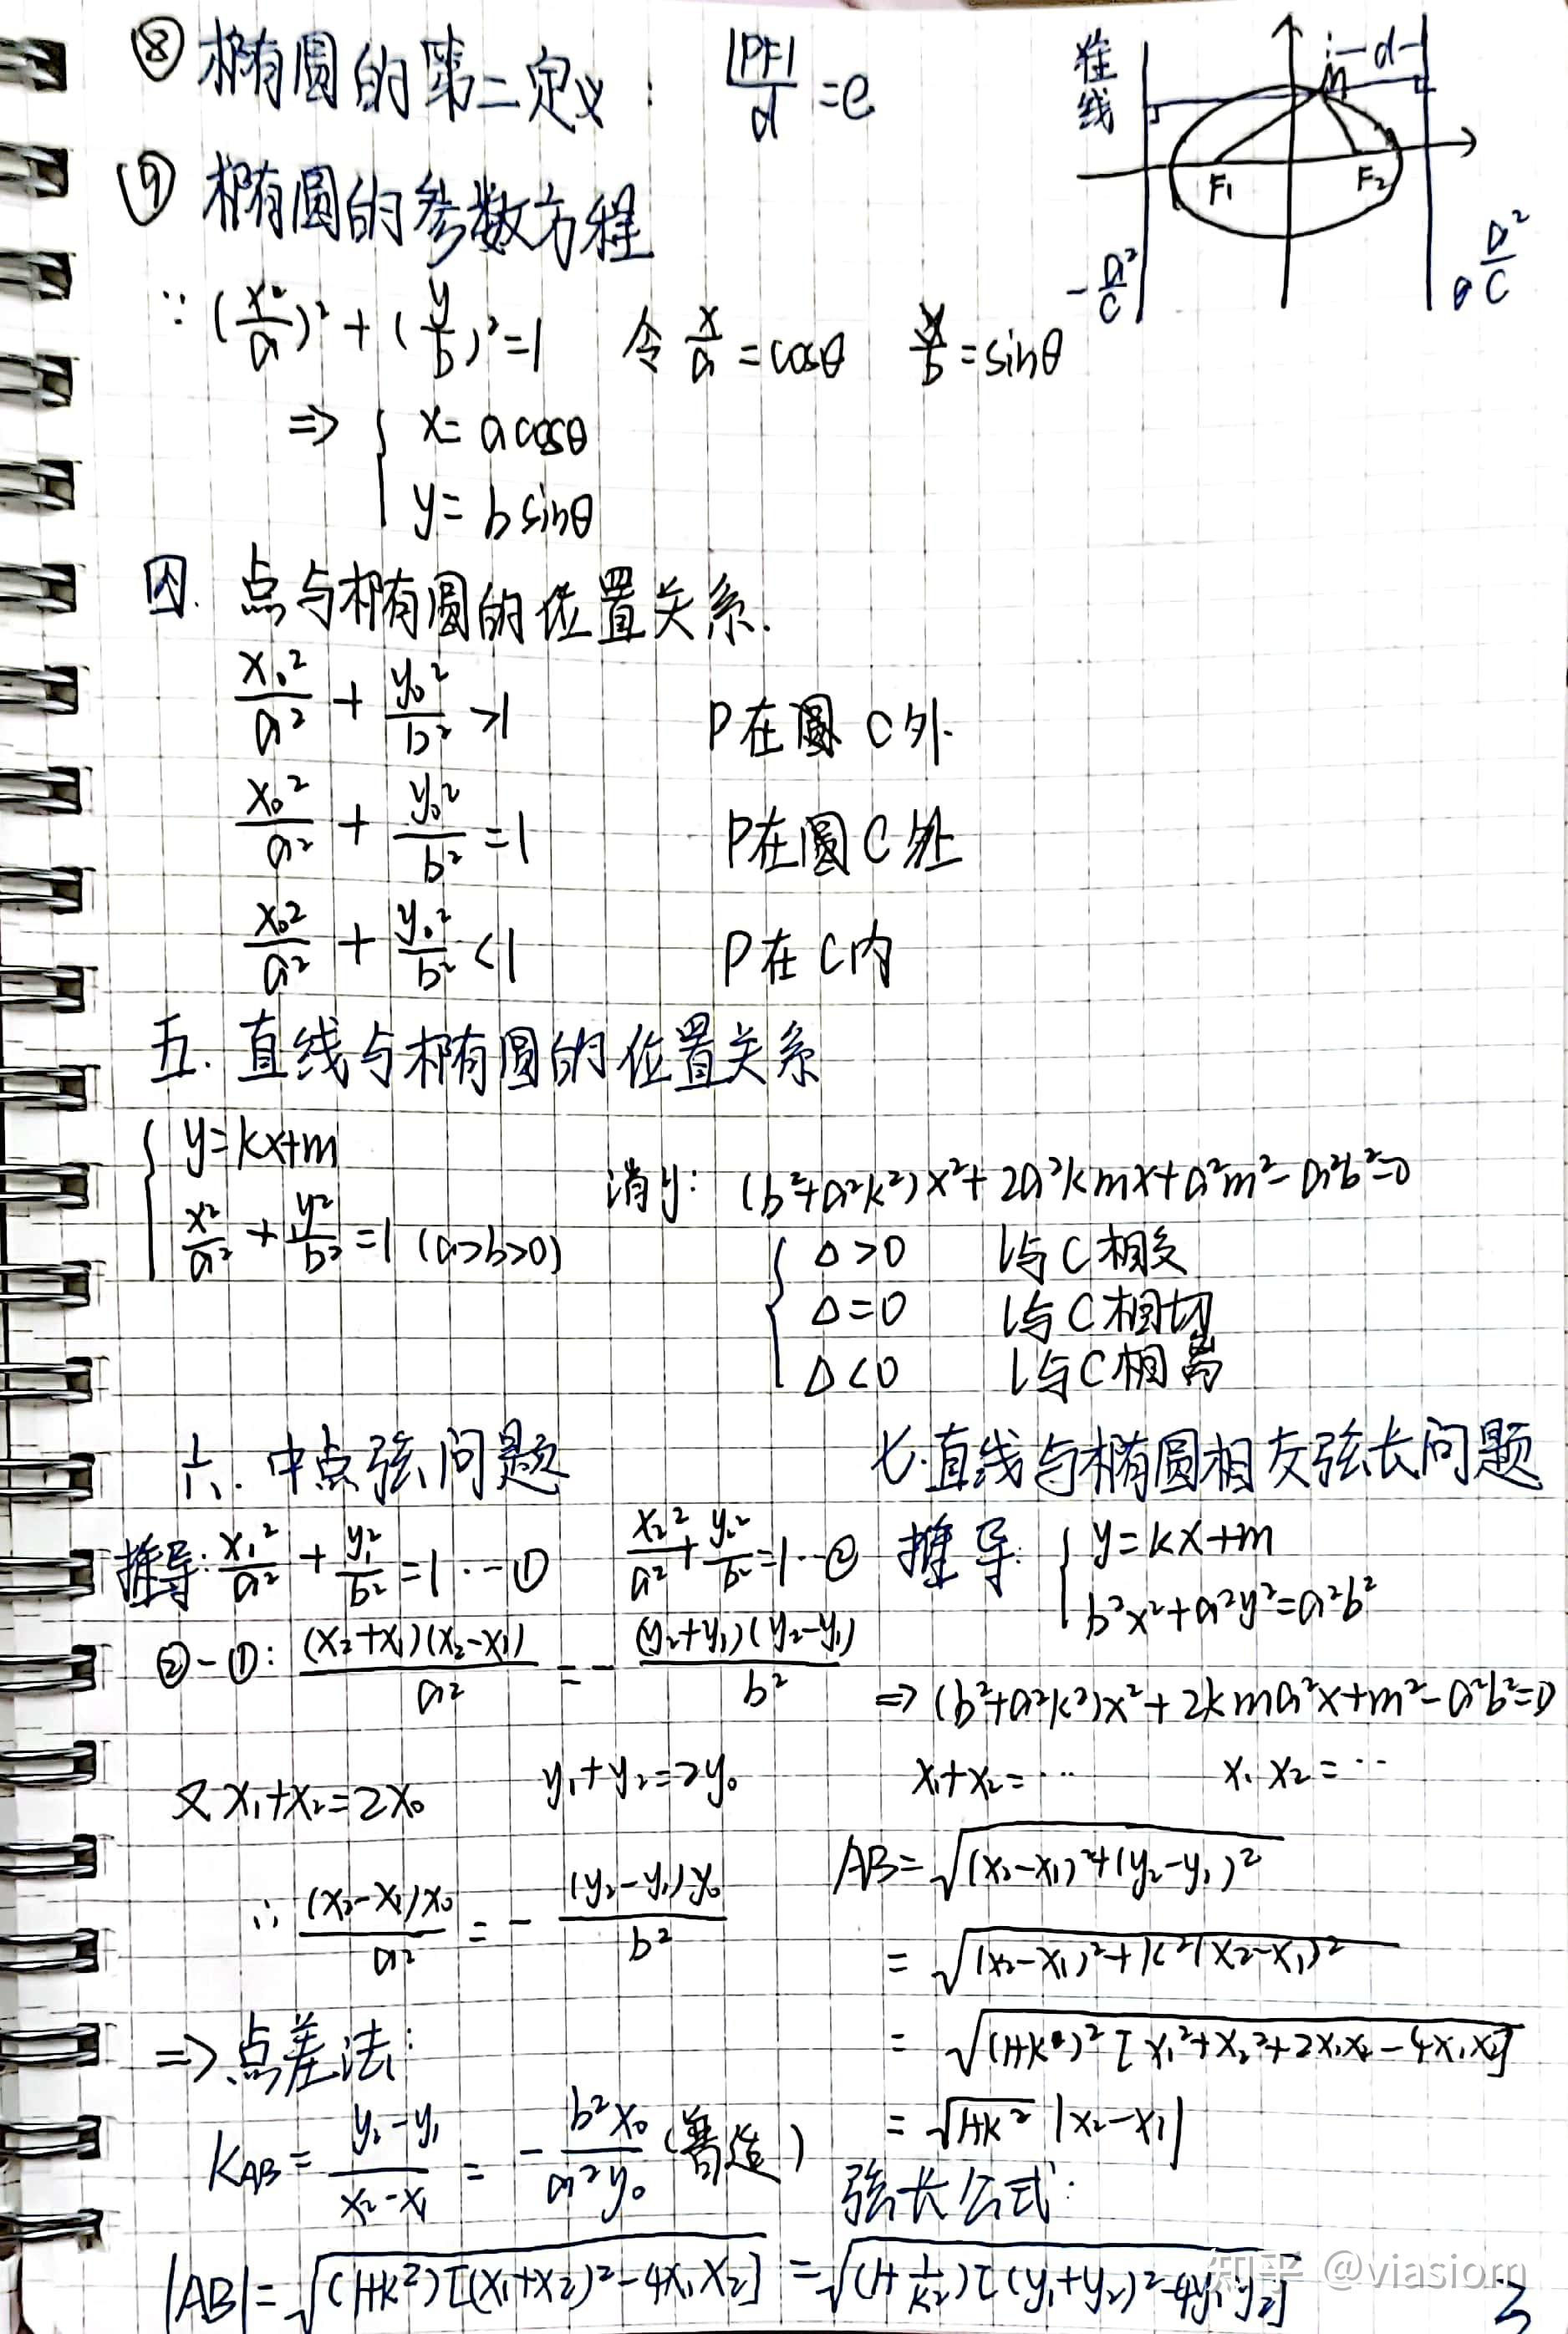 ⑧ 椭圆的第二定义: |PF|/d = e
准线 M d
F₁ F₂
-a²/c a²/c
⑨ 椭圆的参数方程
∵ (x/a)² + (y/b)² = 1 令 x/a = cosθ y/b = sinθ
⇒ { x = a cosθ
y = b sinθ
四. 点与椭圆的位置关系.
x₀²/a² + y₀²/b² > 1 P在圆C外.
x₀²/a² + y₀²/b² = 1 P在圆C上
x₀²/a² + y₀²/b² < 1 P在C内
五. 直线与椭圆的位置关系
{ y = kx+m
x²/a² + y²/b² = 1 (a>b>0)
消y: (b²+a²k²)x² + 2a²kmx + a²m² - a²b² = 0
{ Δ>0 l与C相交
Δ=0 l与C相切
Δ<0 l与C相离
六. 中点弦问题
推导: x₁²/a² + y₁²/b² = 1 … ① x₂²/a² + y₂²/b² = 1 … ②
② - ①: (x₂+x₁)(x₂-x₁)/a² = - (y₂+y₁)(y₂-y₁)/b²
又 x₁+x₂ = 2x₀ y₁+y₂ = 2y₀
∴ (x₂-x₁)x₀/a² = - (y₂-y₁)y₀/b²
⇒ 点差法:
K_AB = (y₂-y₁)/(x₂-x₁) = - b²x₀/(a²y₀)
七. 直线与椭圆相交弦长问题
推导: { y = kx+m
b²x² + a²y² = a²b²
⇒ (b²+a²k²)x² + 2kma²x + m² - a²b² = 0
x₁+x₂ = … x₁x₂ = …
AB = √((x₂-x₁)² + (y₂-y₁)²)
= √((x₂-x₁)² + k²(x₂-x₁)²)
= √((1+k²)²[x₁²+x₂²+2x₁x₂-4x₁x₂])
= √(1+k²) |x₂-x₁|
弦长公式:
|AB| = √((1+k²)[(x₁+x₂)²-4x₁x₂]) = √((1+1/k²)[(y₁+y₂)²-4y₁y₂])
知乎 @viasiom
3